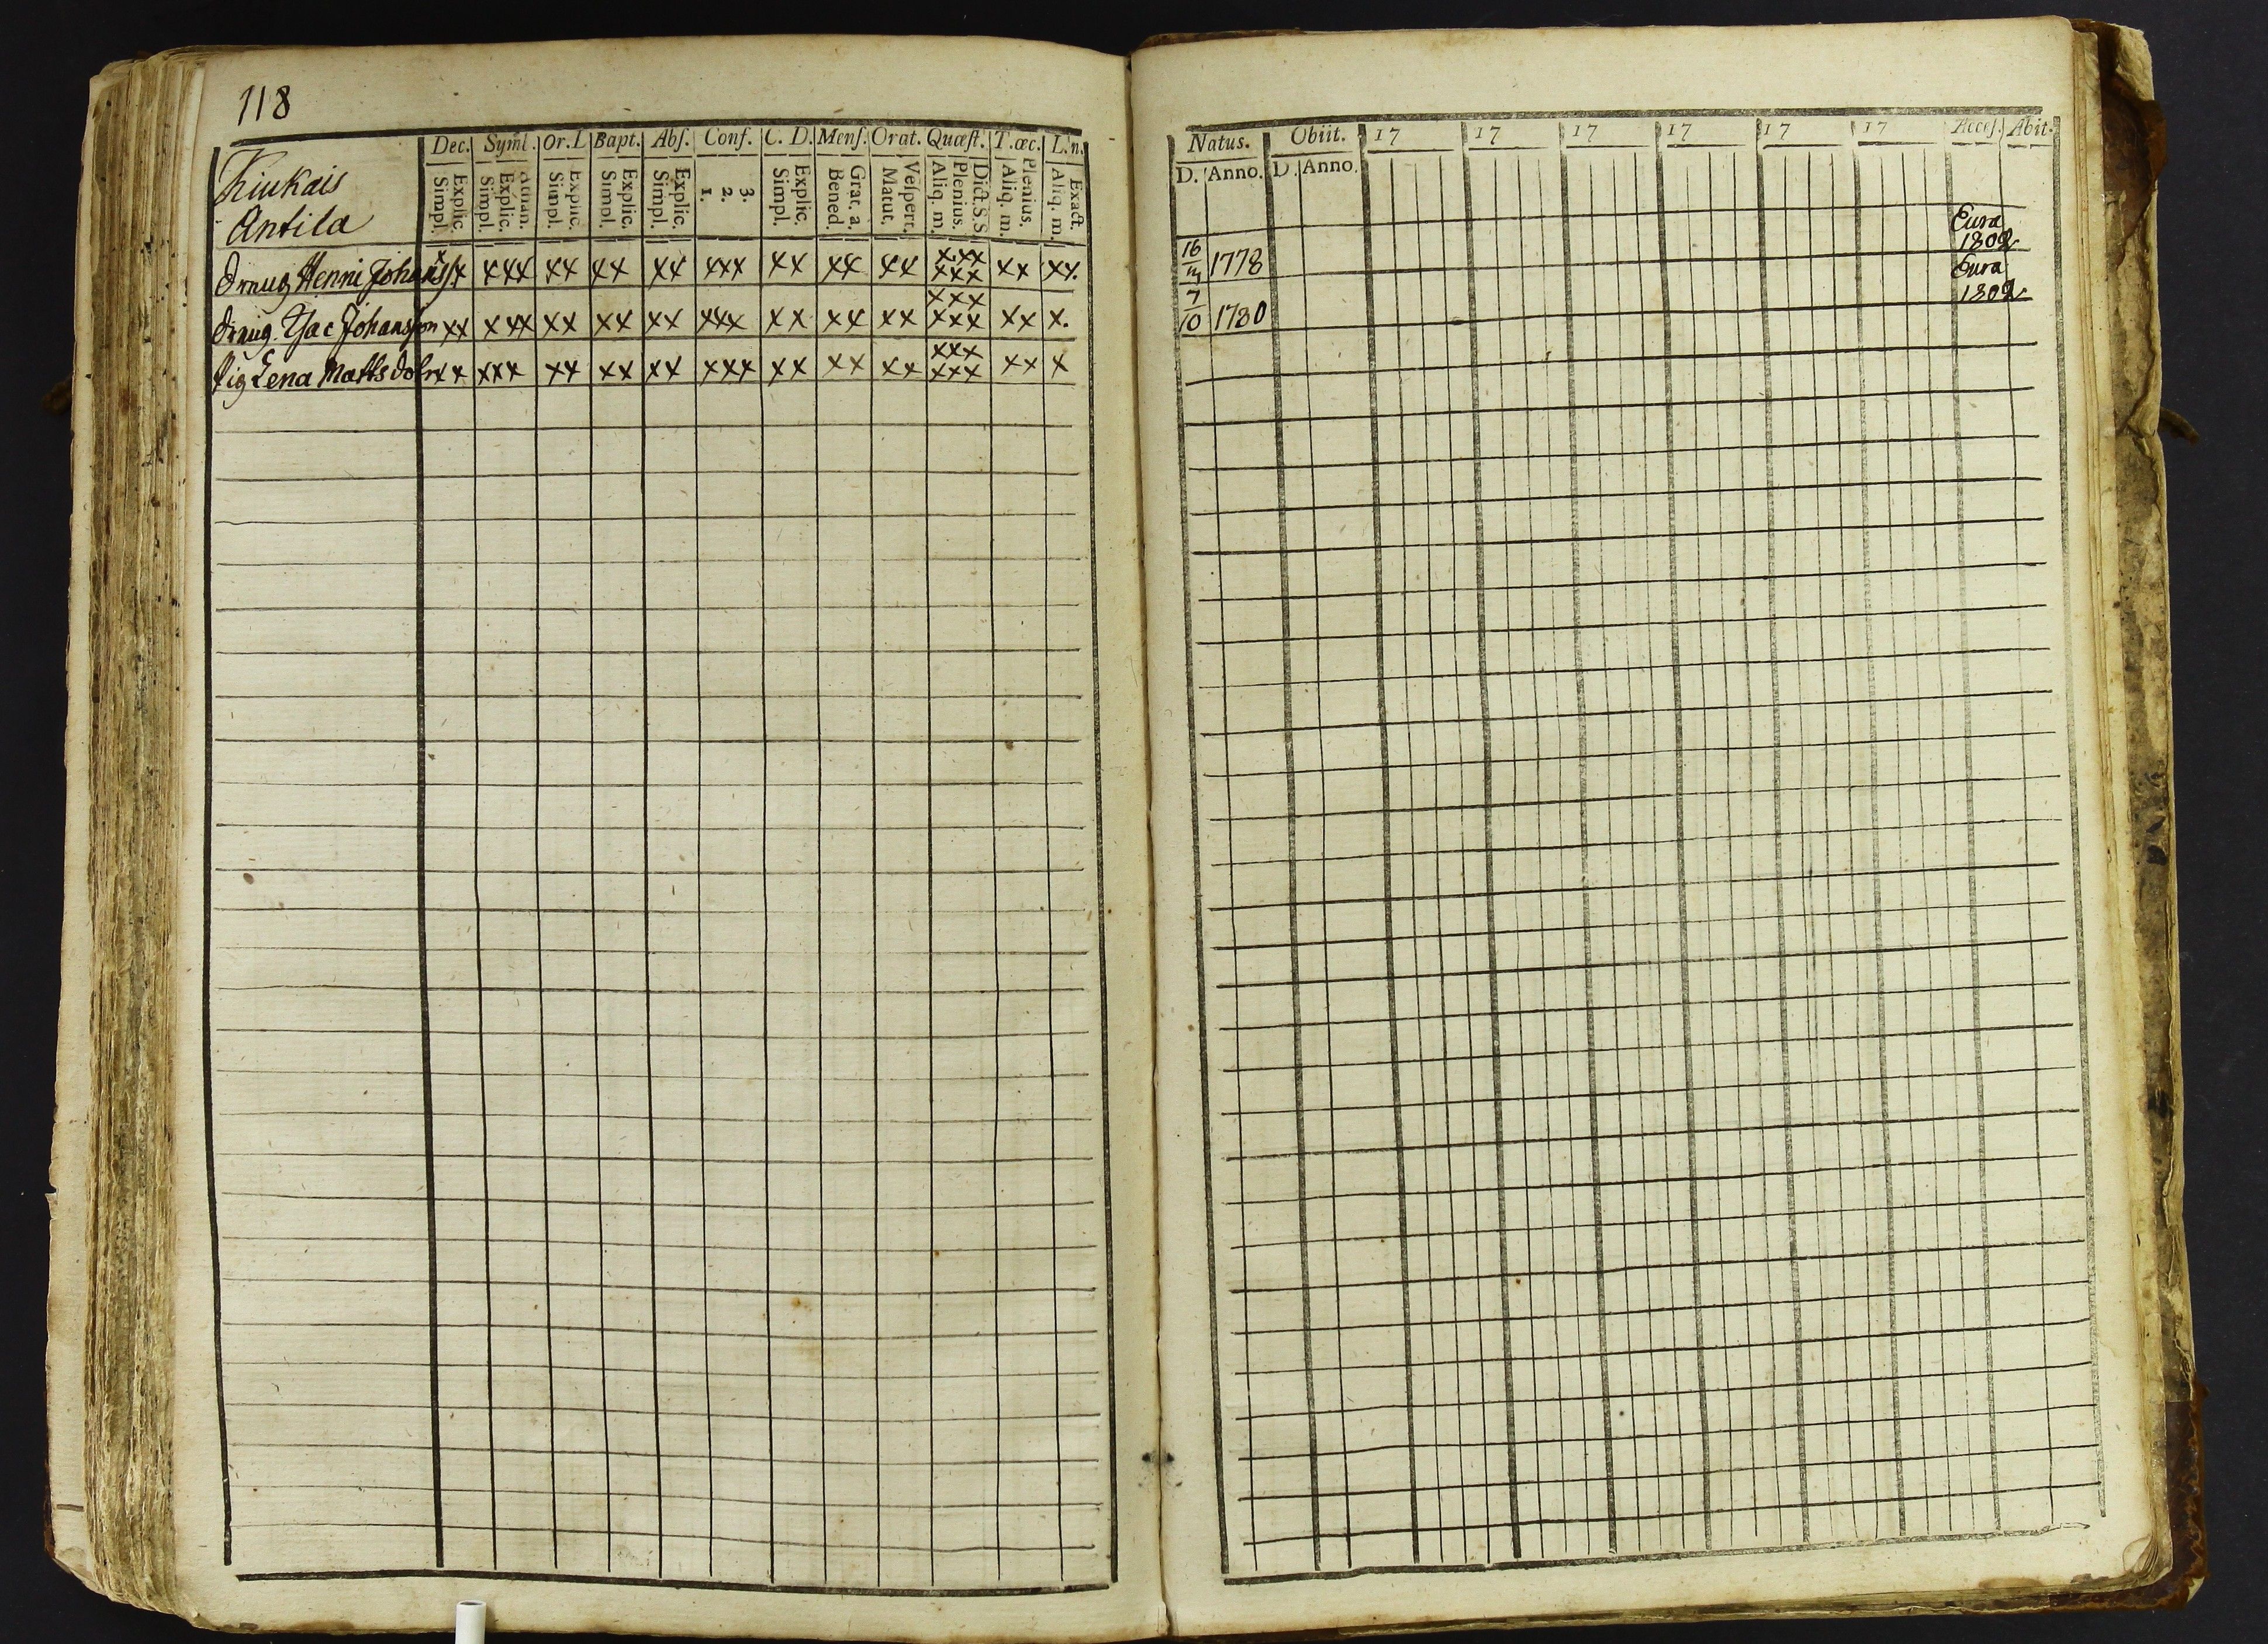 118
Dec. Syml. Or.L Bapt. Abs. Conf. C. D. Mens. Orat. Quæst. T. œc. L. n.
Explic. Simpl. Athan. Explic. Simpl. Explic. Simpl. Explic. Simpl. Explic. Simpl. 3. 2. 1. Explic. Simpl. Grat. a. Bened. Vespert. Matut. Dict.S.S Plenius. Aliq. m. Plenius. Aliq. m. Exact. Aliq. m.
Kiukais
Antila
Dräng Henric Johanss. x xx xxx xx xx xx xxx xx xx xx xxx xxx xx xx.
Dräng Jac Johansson xx xxx xx xx xx xxx xx xx xx xxx xxx xx x.
Pig Lena Matts dotr xx xxx xx xx xx xxx xx xx xx xxx xxx xx x
Natus. Obiit. 17 17 17 17 17 17 Acces. Abit.
D. Anno. D. Anno.
Eura
1802
16 1778
Eura
1802
7/10 1780